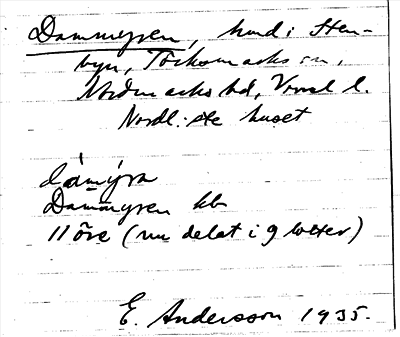 Dammyren, hmd i Sten-
byn, Töcksmarks sn,
Nordmarks hd, Vrml l.
Nordl. ste huset
dámýra
Dammyren kb
11 öre (nu delat i 9 lotter)
E. Andersson 1935.